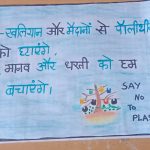 -खलियान और मैदानों से पॉलीथीन
को हटाएंगे,
मानव और धरती को हम
बचाएंगे।
SAY
NO
TO
PLAS